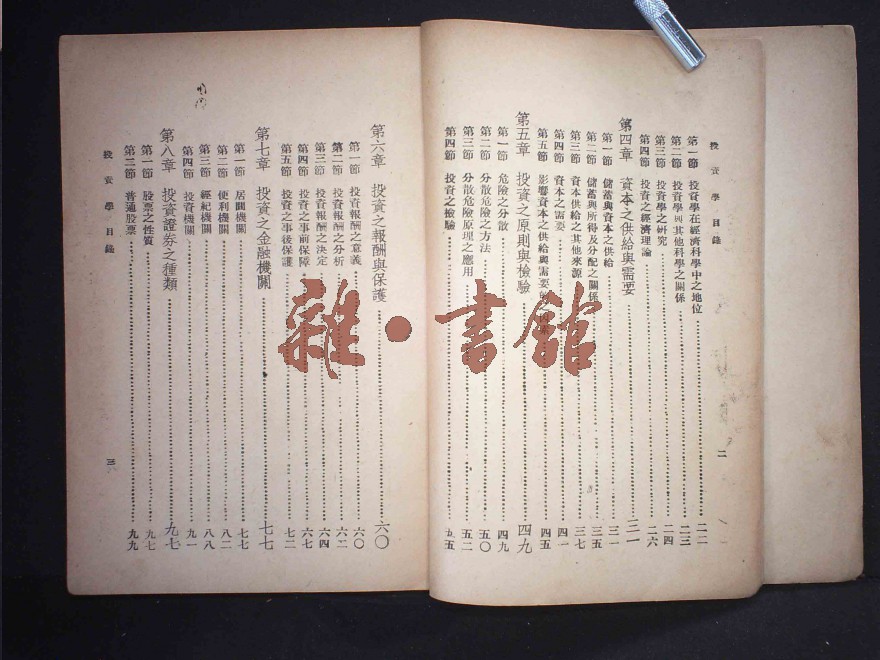 投資學目錄
第一節 投資學在經濟科學中之地位 二二
第二節 投資學與其他科學之關係 二三
第三節 投資學之研究 二四
第四節 投資之經濟理論 二六
第四章 資本之供給與需要 三一
第一節 儲蓄與資本之供給 三一
第二節 儲蓄與所得及分配之關係 三五
第三節 資本供給之其他來源 三七
第四節 資本之需要 四一
第五節 影響資本之供給與需要 四五
第五章 投資之原則與檢驗 四九
第一節 危險之分散 四九
第二節 分散危險之方法 五〇
第三節 分散危險原理之應用 五二
第四節 投資之檢驗 五五
二
第六章 投資之報酬與保護 六〇
第一節 投資報酬之意義 六〇
第二節 投資報酬之分析 六二
第三節 投資報酬之決定 六四
第四節 投資之事前保障 六七
第五節 投資之事後保護 七二
第七章 投資之金融機關 七七
第一節 居間機關 七七
第二節 便利機關 八二
第三節 經紀機關 八八
第四節 投資機關 九一
第八章 投資證券之種類 九七
第一節 股票之性質 九七
第二節 普通股票 九九
投資學目錄
三
雜·書館